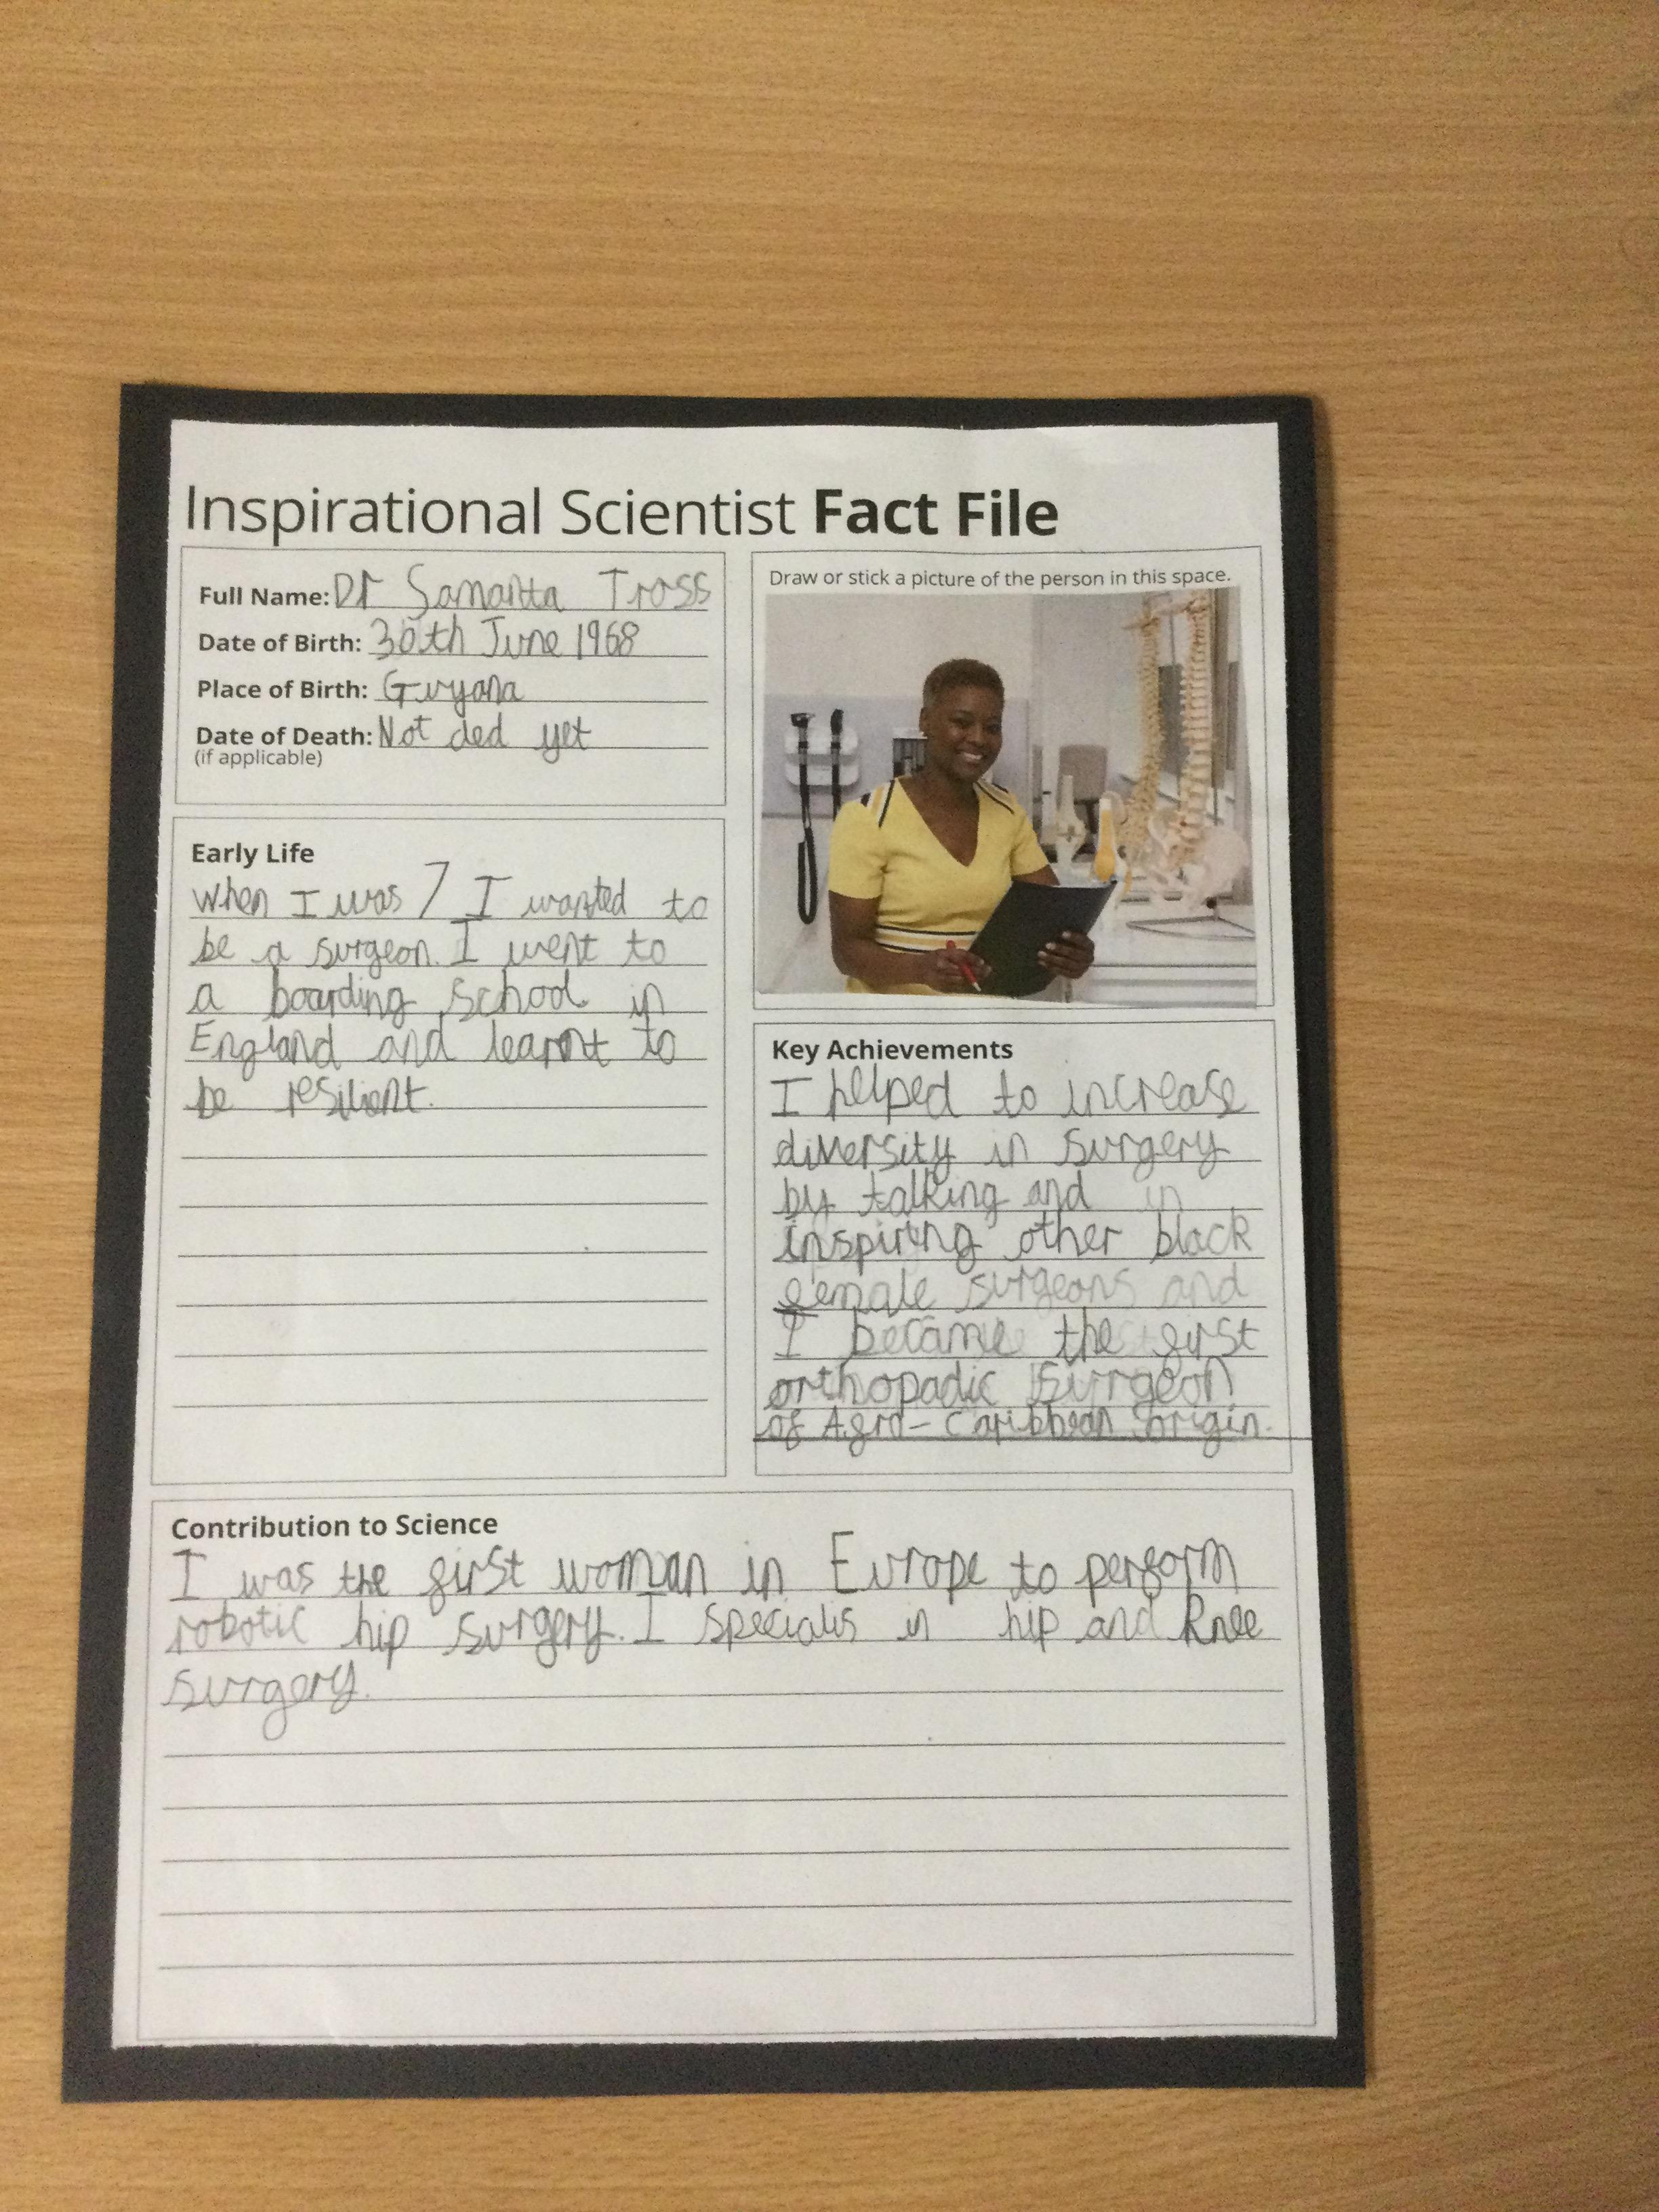 Inspirational Scientist Fact File
Full Name: Dr Samanta Tross
Date of Birth: 30th June 1968
Place of Birth: Guyana
Date of Death: Not ded yet
(if applicable)
Draw or stick a picture of the person in this space.
Early Life
When I was 7 I wanted to
be a surgeon. I went to
a boarding school in
England and learnt to
be resilient.
Key Achievements
I helped to increase
diversity in surgery
by talking and in
inspiring other black
female surgeons and
I became the first
orthopadic surgeon
of Afro-Caribbean origin.
Contribution to Science
I was the first woman in Europe to perform
robotic hip surgery. I specialis in hip and knee
surgery.